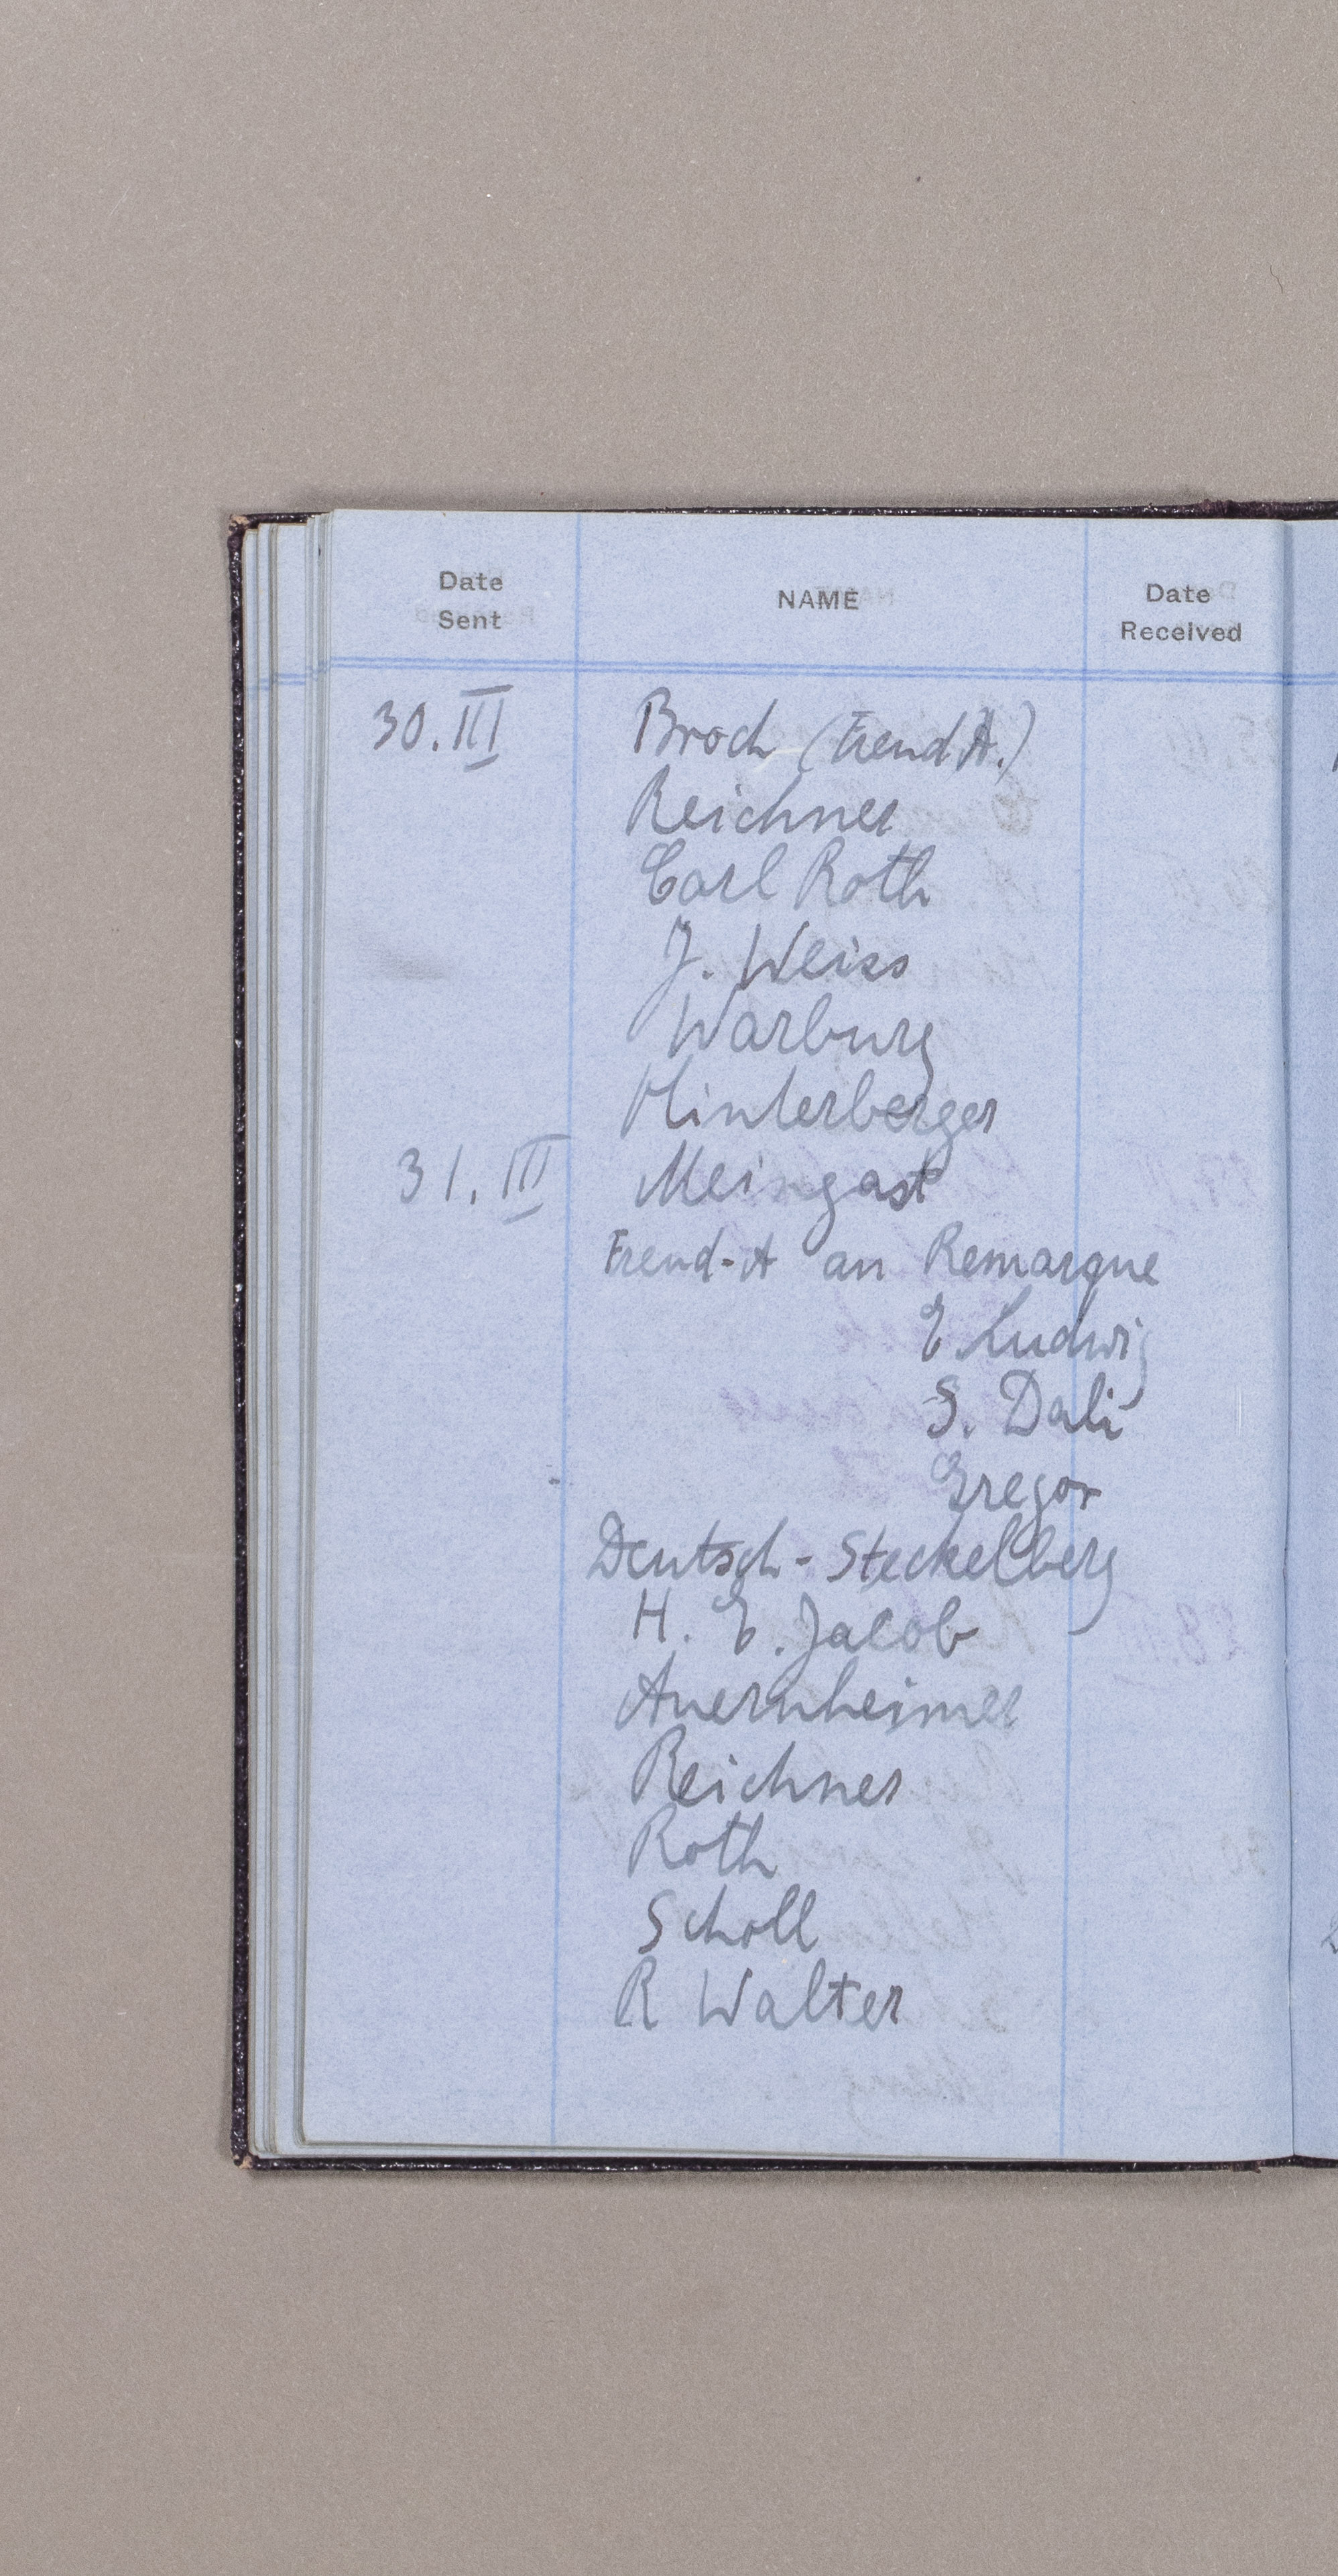 Date Sent NAME Date Received
30. III Broch (Freud A.)
Reichner
Carl Roth
J. Weiss
Warburg
Hinterberger
31. III Meingast
Freud-A an Remarque
E Ludwig
S. Dali
Gregor
Deutsch-Steckelberg
H. E. Jacob
Auernheimer
Reichner
Roth
Scholl
R Walter